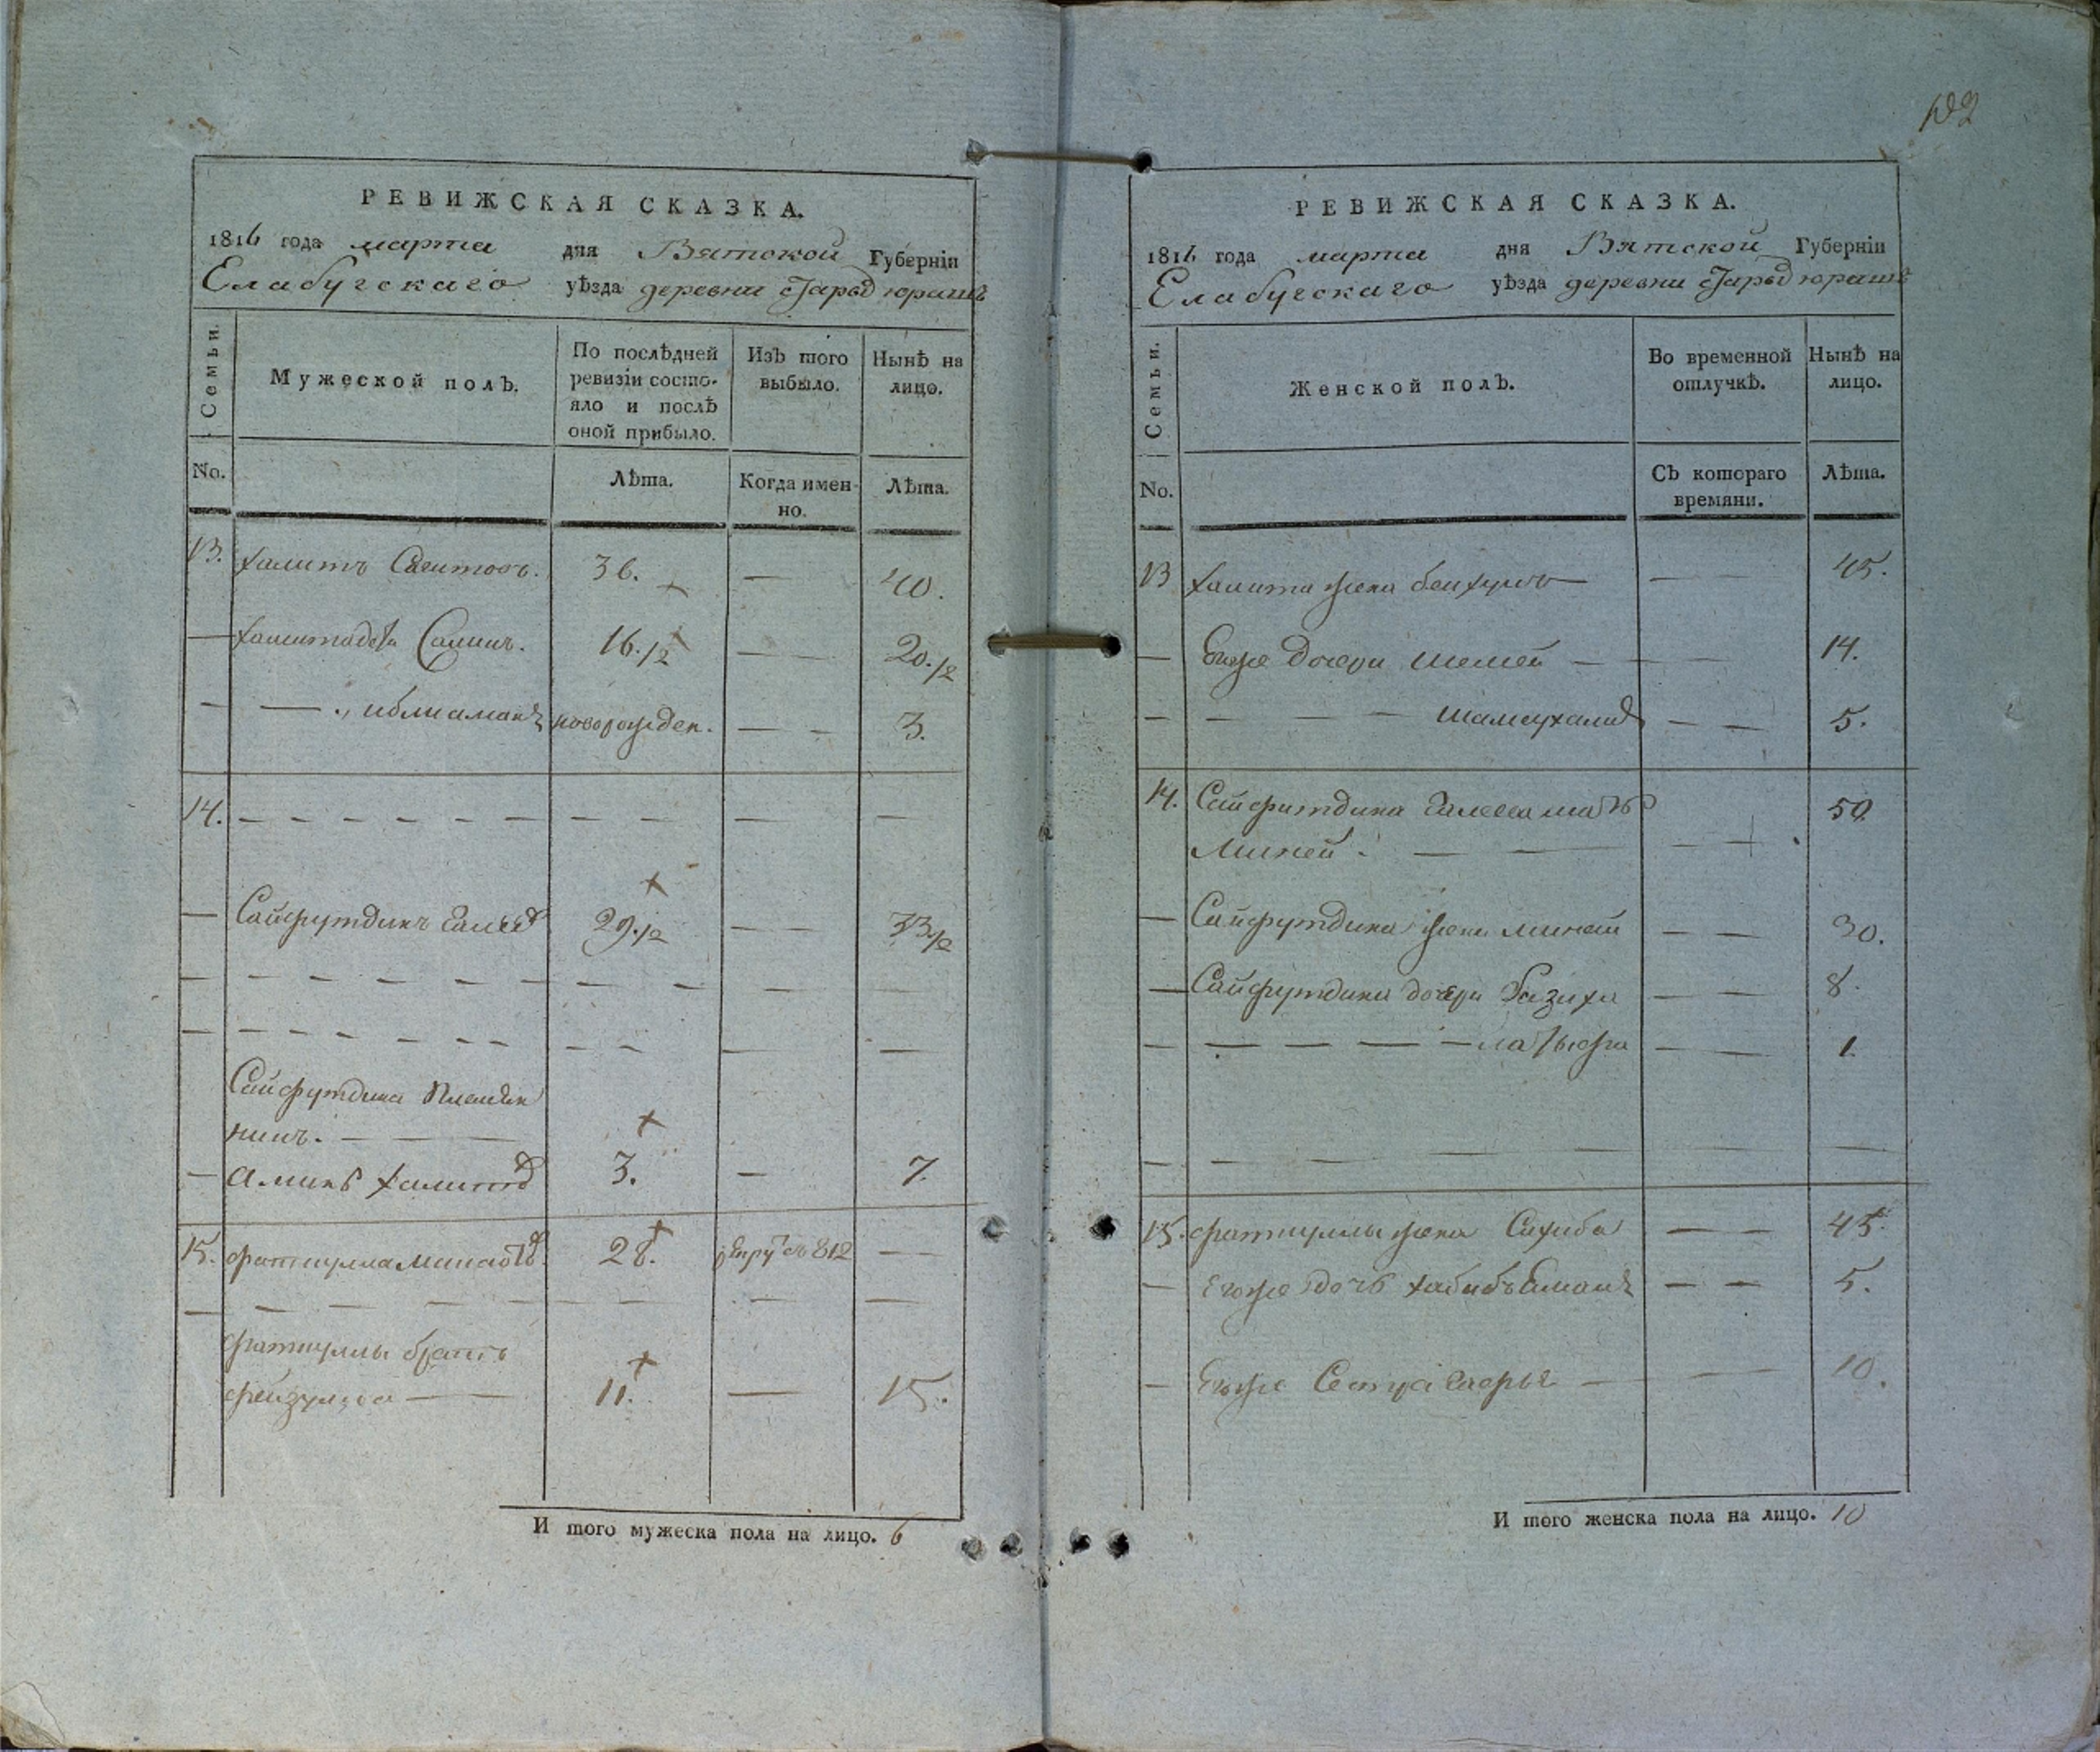 102
РЕВИЖСКАЯ СКАЗКА.
1816 года марта дня Вятской Губерніи
Елабугскаго уѣзда деревни Старыд юрашъ
Семьи.
Мужеской полъ.
По послѣдней ревизіи состояло и послѣ оной прибыло.
Изъ того выбыло.
Нынѣ на лицо.
No.
Лѣта.
Когда именно.
Лѣта.
13. Халитъ Сагитовъ. 36. — 40.
— Халита дети Салимъ. 16.1/2 — — 20.1/2
— — новорожден. — — 3.
14. — — — — — — — — — — —
— Сайфутдинъ 29.1/2 — — 33 1/2
— — — — — — — — — — — —
— — — — — — — — — — —
Сайфутдина племян
никъ. — — —
— Аминъ Халито 3. — 7.
15. фаткулла 28. рекру съ 812 — —
— — — — — — — — —
фаткуллы братъ
фейзулла — — 11. — 15.
И того мужеска пола на лицо. 6
РЕВИЖСКАЯ СКАЗКА.
1816 года марта дня Вятской Губерніи
Елабугскаго уѣзда деревни Старыд юрашъ
Семьи.
Женской полъ.
Во временной отлучкѣ.
Нынѣ на лицо.
No.
Съ котораго времяни.
Лѣта.
13 Халита жена — — 45.
— Егоже дочери — — — 14.
— — — — — — 5.
14. Сайфитдина мать 50
Миней. — — — —
— Сайфутдина жена Миней — — 30.
— Сайфутдина дочери Разиха — — 8.
— — — — — — Латыфа — — 1.
— — — — — — — — —
15. фаткуллы жена Сахиба — — 45.
— Егоже дочь — — 5.
— Егоже — — 10.
И того женска пола на лицо. 10